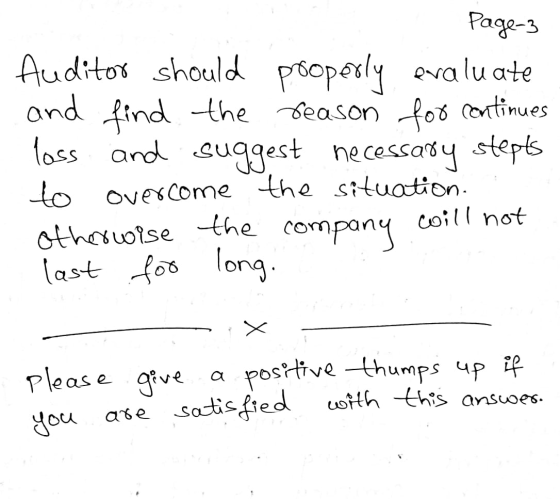 Page-3
Auditor should properly evaluate
and find the reason for continues
loss and suggest necessary stepts
to overcome the situation.
otherwise the company will not
last for long.
x
Please give a positive thumps up if
you are satisfied with this answer.